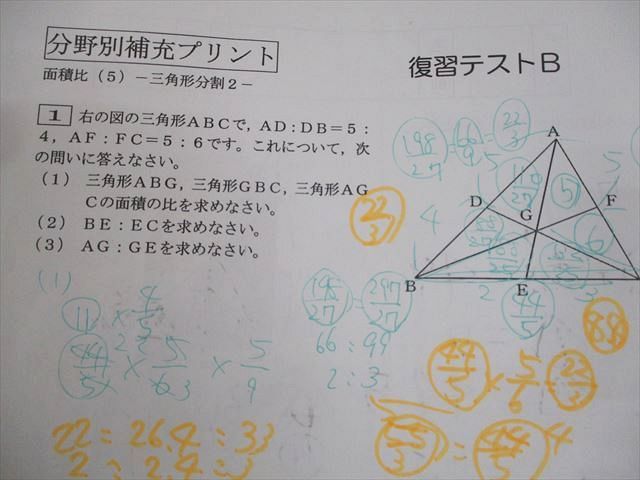 分野別補充プリント
面積比（5）－三角形分割2－
復習テストB
1 右の図の三角形ABCで，AD：DB＝5：
4，AF：FC＝5：6です。これについて，次
の問いに答えなさい。
（1） 三角形ABG，三角形GBC，三角形AG
Cの面積の比を求めなさい。
（2） BE：ECを求めなさい。
（3） AG：GEを求めなさい。
198/27 = 66/9 = 22/3
A
5
5
D
F
4
G
6
B
E
2
3
44/5
88
22/3
(1)
11 × 4/5
44/5 × 5/63 × 5/9
198/27 : 297/27
66 : 99
2 : 3
44/5 × 5/6 = 22/3
55/3 : 44/5
22 : 26.4 : 33
2 : 2.4 : 3